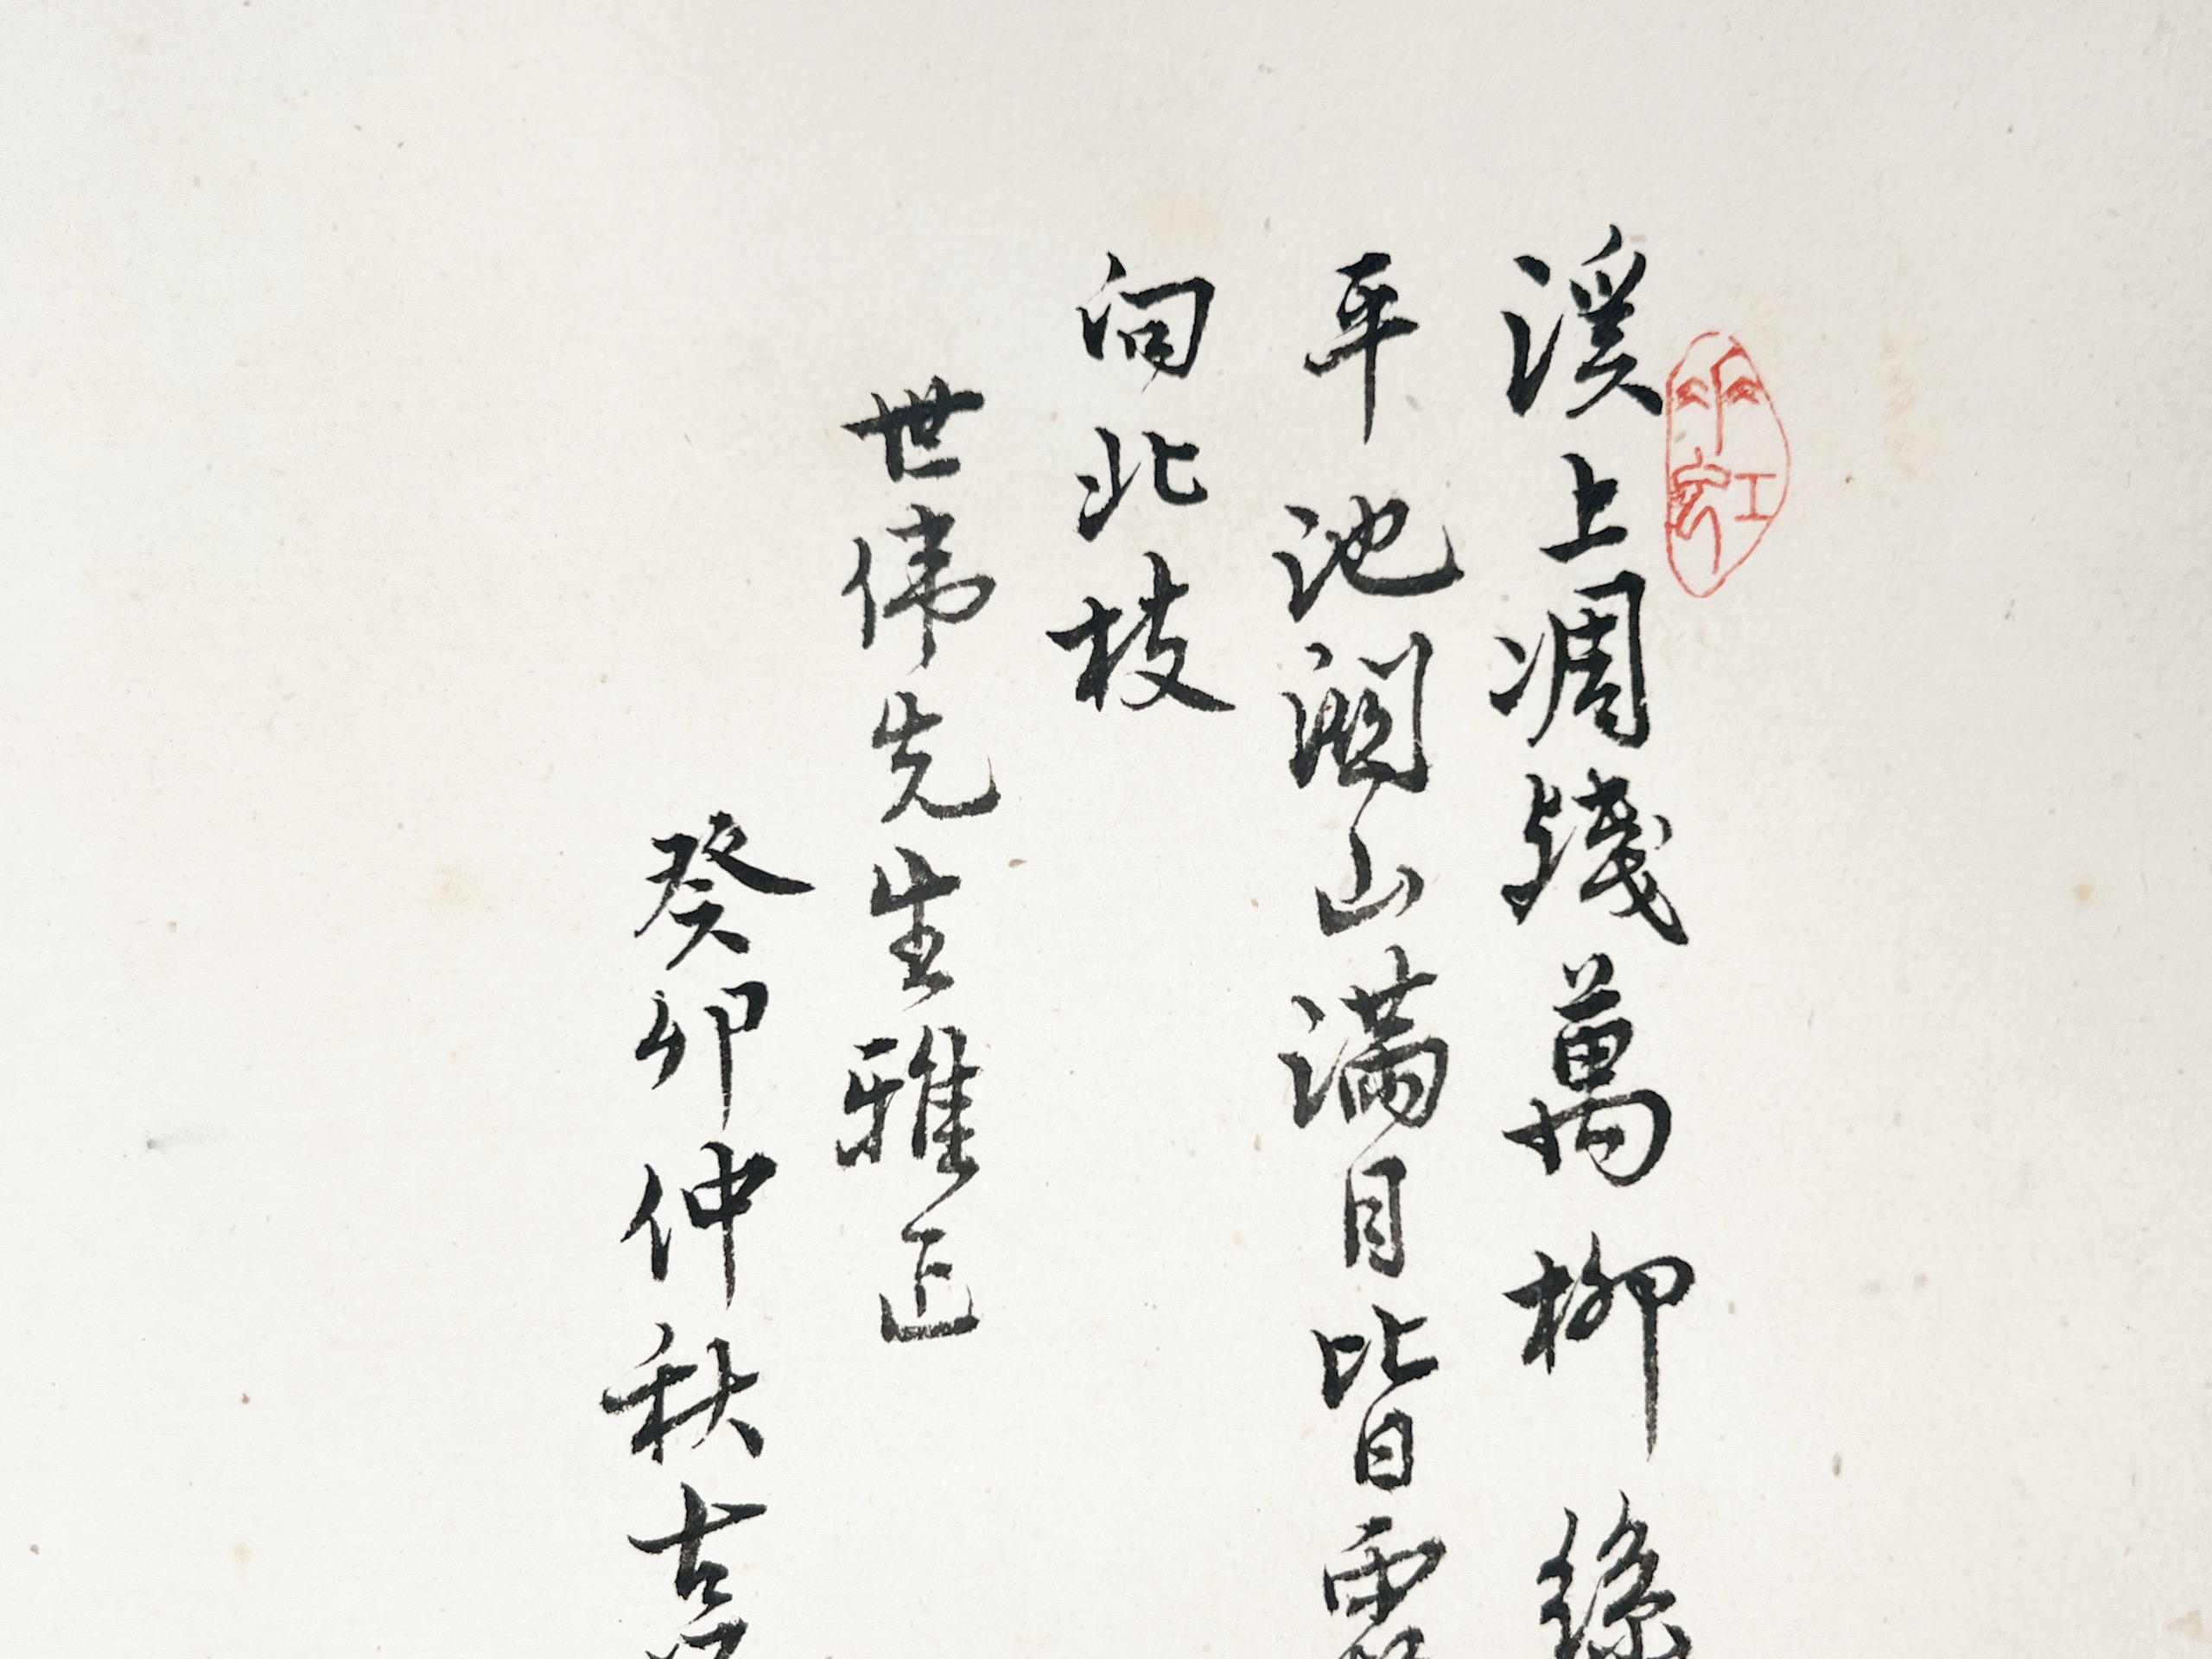 溪上凋殘萬柳絲
平池關山滿目皆
向北枝
世偉先生雅正
癸卯仲秋古